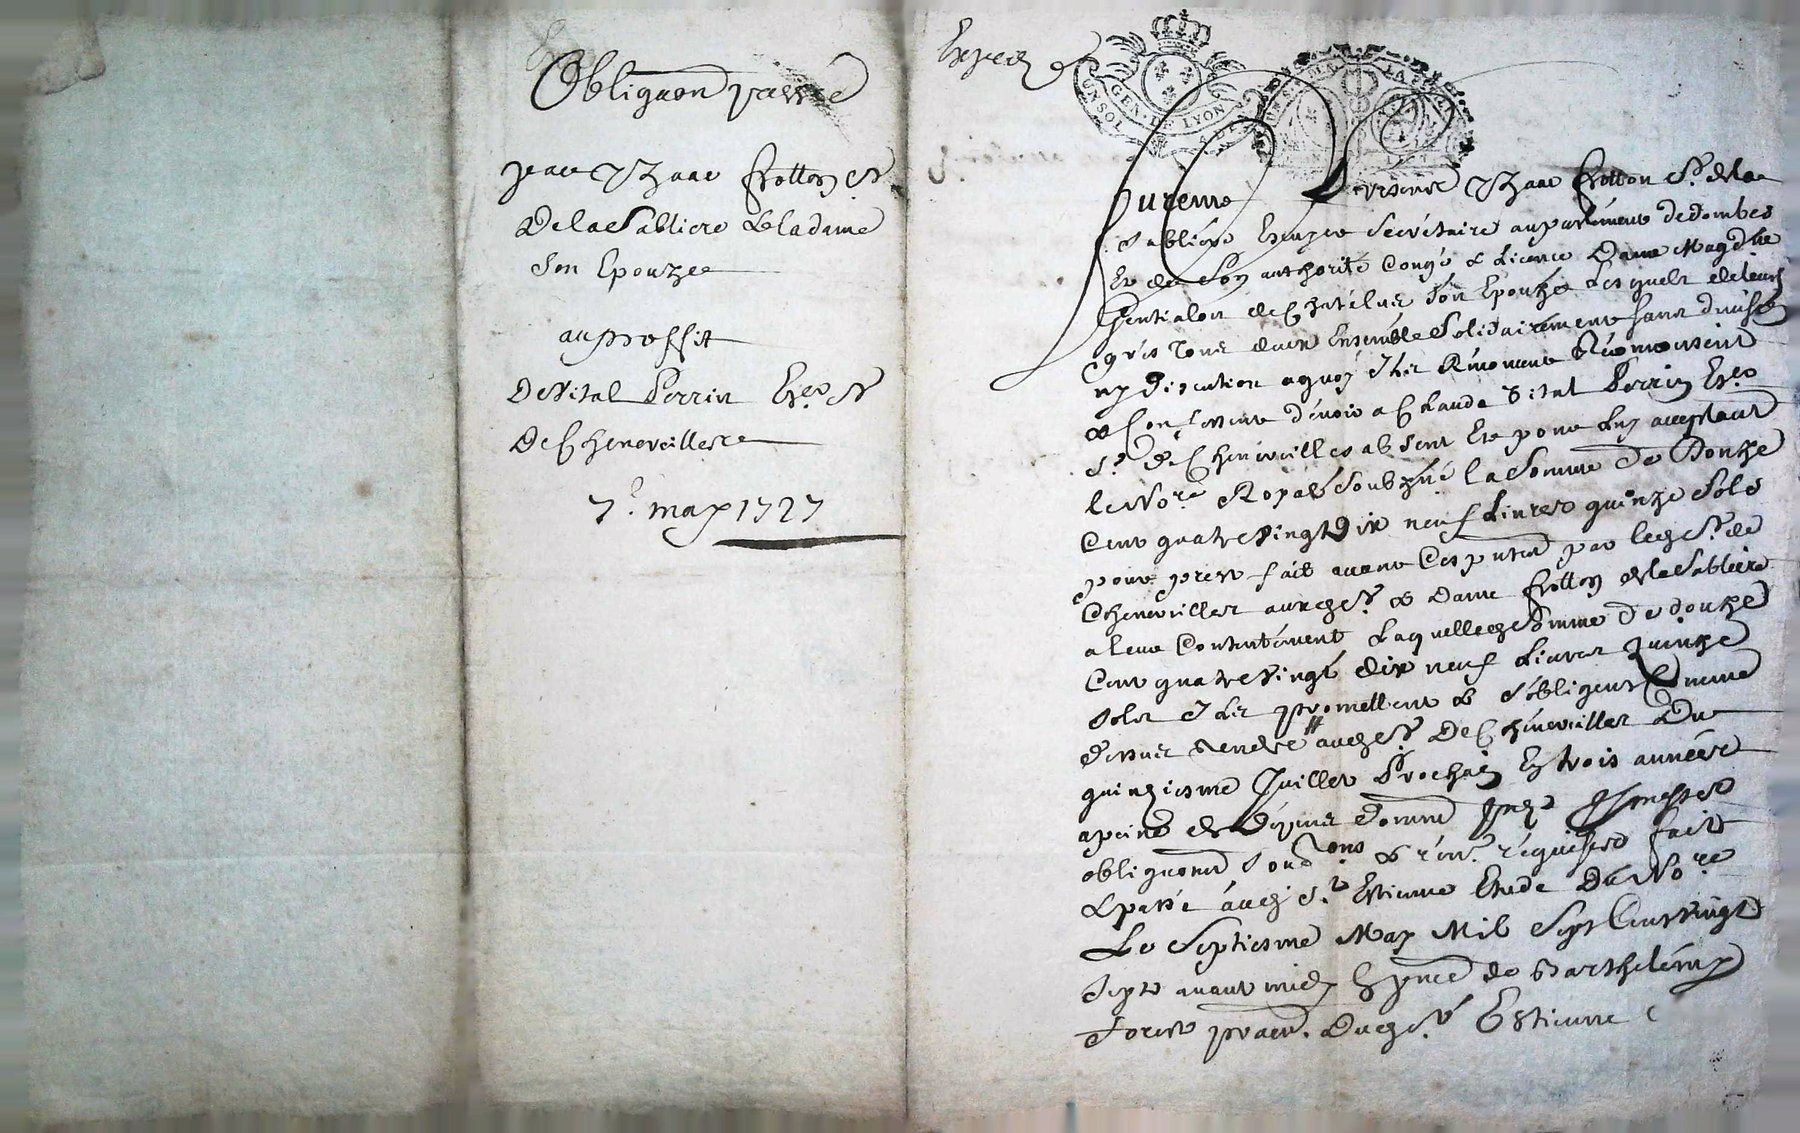 Obligaõn passée
Jean Yzaac Frotton Sr
De la Sabliere & la dame
Son Epouzee
au proffit
De Vital Perrin Eser Sr
De Chenereilles
7e. may 1727
Exped
GEN. DE LYON
UN SOL
Furent Yzaac Frotton Sr. de la
Sabliere Escuyer Secrétaire au parlement de dombes
Et de Son authorité Congé & Licence Dame Magdne
de Chatelus Son Epouze Lesquels de leurs
grés Tous deux Ensemble Solidairement Sans division
ny discution a quoy Ils Renoncent
& Confessent dévoir a Claude Vital Perrin Eser
Sr. De Chenereilles absent Et pour Luy acceptant
le Nore. Royal Soubzné la Somme de Douze
Cent quatre Vingt Dix neuf Livres quinze Sols
pour prest fait avant Ces putes par ledt Sr. de
Chenereilles auxdt Sr. & Dame Frotton de la Sabliere
a leur Contentement Laquelle dt Somme de douze
Cent quatre Vingt dix neuf Livres Quinze
Sols Ils promettent & S'obligent Comme
dessus Rendre audt Sr De Chenereilles Du
quinziesme Juillet Prochain En trois années
a peine de Dépens Domm
obligaõns Soub ons & requises fait
& passé audt St Estienne Etude Du Nore
Le Septiesme May Mil Sept Cent Vingt
Sept avant midy de Barthelemy
Forest praen. Dudt St Estienne